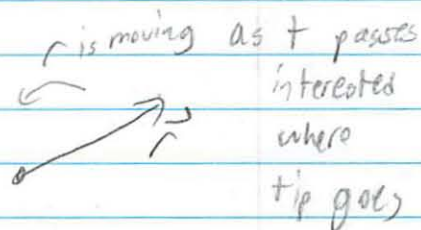 r is moving as t passes
interested
where
r
tip goes